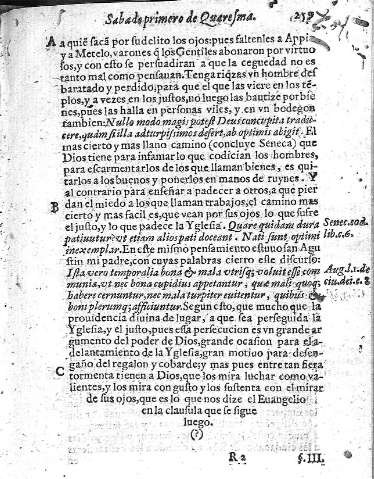 Sabado primero de Quaresma.
A a quiē sacā por su delito los ojos: pues faltenles a Appi,
y a Metelo, varones q̄ los Gentiles abonaron por virtuo
sos, y con esto se persuadiran a que la ceguedad no es
tanto mal como pensauan. Tenga riqzas vn hombre des
baratado y perdido, para que el que las viere en los tē-
plos, y a vezes en los justos, no luego las bautize por bie
nes, pues las halla en personas viles, y en vn bodegon
tambien: Nullo modo magis potest Deus concupita tradu-
cere, quàm si illa ad turpissimos defert, ab optimis abigit. El
mas cierto y mas llano camino (concluye Seneca) que
Dios tiene para infamar lo que codician los hombres,
para escarmentarlos de los que llaman bienes, es qui-
tarlos a los buenos y ponerlos en manos de ruynes. Y
al contrario para enseñar a padecer a otros, a que pier
B dan el miedo a los que llaman trabajos, el camino mas
cierto y mas facil es, que vean por sus ojos lo que sufre
el justo, y lo que padece la Yglesia. Quare quidam dura
patiuntur vt etiam alios pati doceant. Nati sunt optimi
in exemplar. En este mismo pensamiento estuuo san Agu
stin mi padre, con cuyas palabras cierro este discurso:
Ista vero temporalia bona & mala vtrisq; voluit esse com
munia, vt nec bona cupidius appetantur, quæ mali quoq;
habere cernuntur, nec mala turpiter euitentur, quibus &
boni plerumq; afficiuntur. Segun esto, que mucho que la
prouidencia diuina de lugar, a que sea perseguida la
Yglesia, y el justo, pues essa persecucion es vn grande ar
gumento del poder de Dios, grande ocasion para el a-
delantamiento de la Yglesia, gran motiuo para desen-
gaño del regalon y cobarde; y mas pues entre tan fiera
C tormenta tienen a Dios, que los mira luchar como va-
lientes, y los mira con gusto y los sustenta con el mirar
de sus ojos, que es lo que nos dize el Euangelio
en la clausula que se sigue
luego.
(?)
Senec. sod.
lib. c. 6.
Aug. l. 1. de
ciu. dei. c. 8
R 2
§. III.